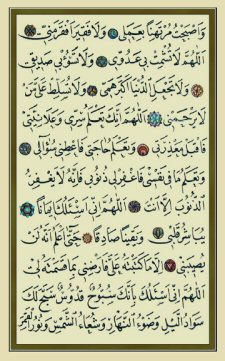 وَاَصْبَحْتُ مُرْتَهَنًا بِعَمَلِي وَلَا فَقِيرَ اَفْقَرُ مِنِّي
اَللّٰهُمَّ لَا تُشْمِتْ بِي عَدُوِّي وَلَا تَسُؤْ بِي صَدِيقِي
وَلَا تَجْعَلِ الدُّنْيَا اَكْبَرَ هَمِّي وَلَا تُسَلِّطْ عَلَيَّ مَنْ
لَا يَرْحَمُنِي اَللّٰهُمَّ اِنَّكَ تَعْلَمُ سِرِّي وَعَلَانِيَتِي
فَاقْبَلْ مَعْذِرَتِي وَتَعْلَمُ حَاجَتِي فَاَعْطِنِي سُؤَالِي
وَتَعْلَمُ مَا فِي نَفْسِي فَاغْفِرْ لِي ذُنُوبِي فَاِنَّهُ لَا يَغْفِرُ
الذُّنُوبَ اِلَّا اَنْتَ اَللّٰهُمَّ اِنِّي اَسْئَلُكَ اِيمَانًا
يُبَاشِرُ قَلْبِي وَيَقِينًا صَادِقًا حَتّٰى اَعْلَمَ اَنَّهُ لَنْ
يُصِيبَنِي اِلَّا مَا كَتَبْتَهُ عَلَيَّ فَاَرْضِنِي بِمَا قَسَمْتَهُ لِي
اَللّٰهُمَّ اِنِّي اَسْئَلُكَ بِاَنَّكَ سُبُّوحٌ قُدُّوسٌ سَبَّحَ لَكَ
سَوَادُ الَّيْلِ وَضَوْءُ النَّهَارِ وَشُعَاعُ الشَّمْسِ وَنُورُ الْقَمَرِ